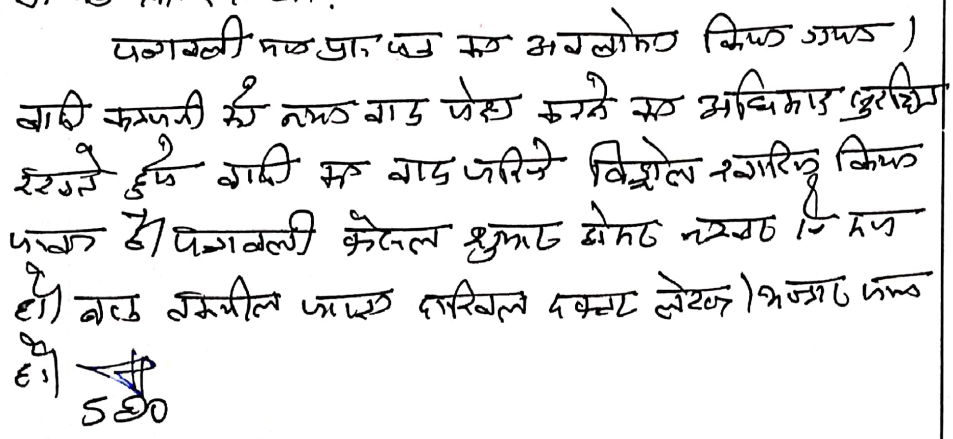 पत्रावली मय प्रा० पत्र का अवलोकन किया गया।
वादी कम्पनी को नया वाद पेश करने का अधिकार सुरक्षित
रखते हुए वादी का वाद जरिये विड्रोल खारिज किया
जाता है। पत्रावली फैसल शुमार होकर नम्बर से कम
हो। बाद तकमील जाप्ता दाखिल दफ्तर लेख्य।
हो।